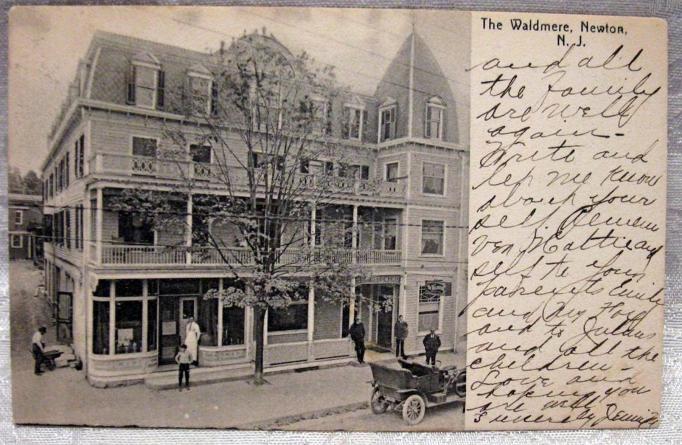 The Waldmere, Newton,
N. J.
and all
the Family
are well
again -
Write and
let me know
about your
self Remem
ber Mattie and
self to your
parents Emily
and
and to Julius
and all the
children -
Love and
hoping you
are well
Sincerely Jennie